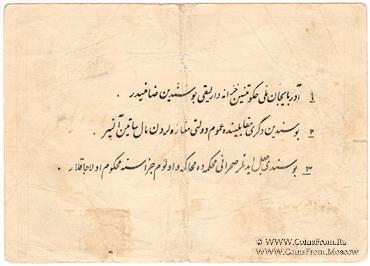 ۱ آذربایجان ملی حکومتینین خزانه داریقی بو سندین ضامنیدیر.
۲ بو سندین دگری مقابلینده عموم دولتی مغازه لردن مال ساتین آلینیر.
۳ بو سندی جعل ایدنلر صحرائی محکمه ده محاکمه و اولوم جزاسنه محکوم اولاجاقلار.
© www.CoinsFrom.RU
© www.CoinsFrom.Moscow